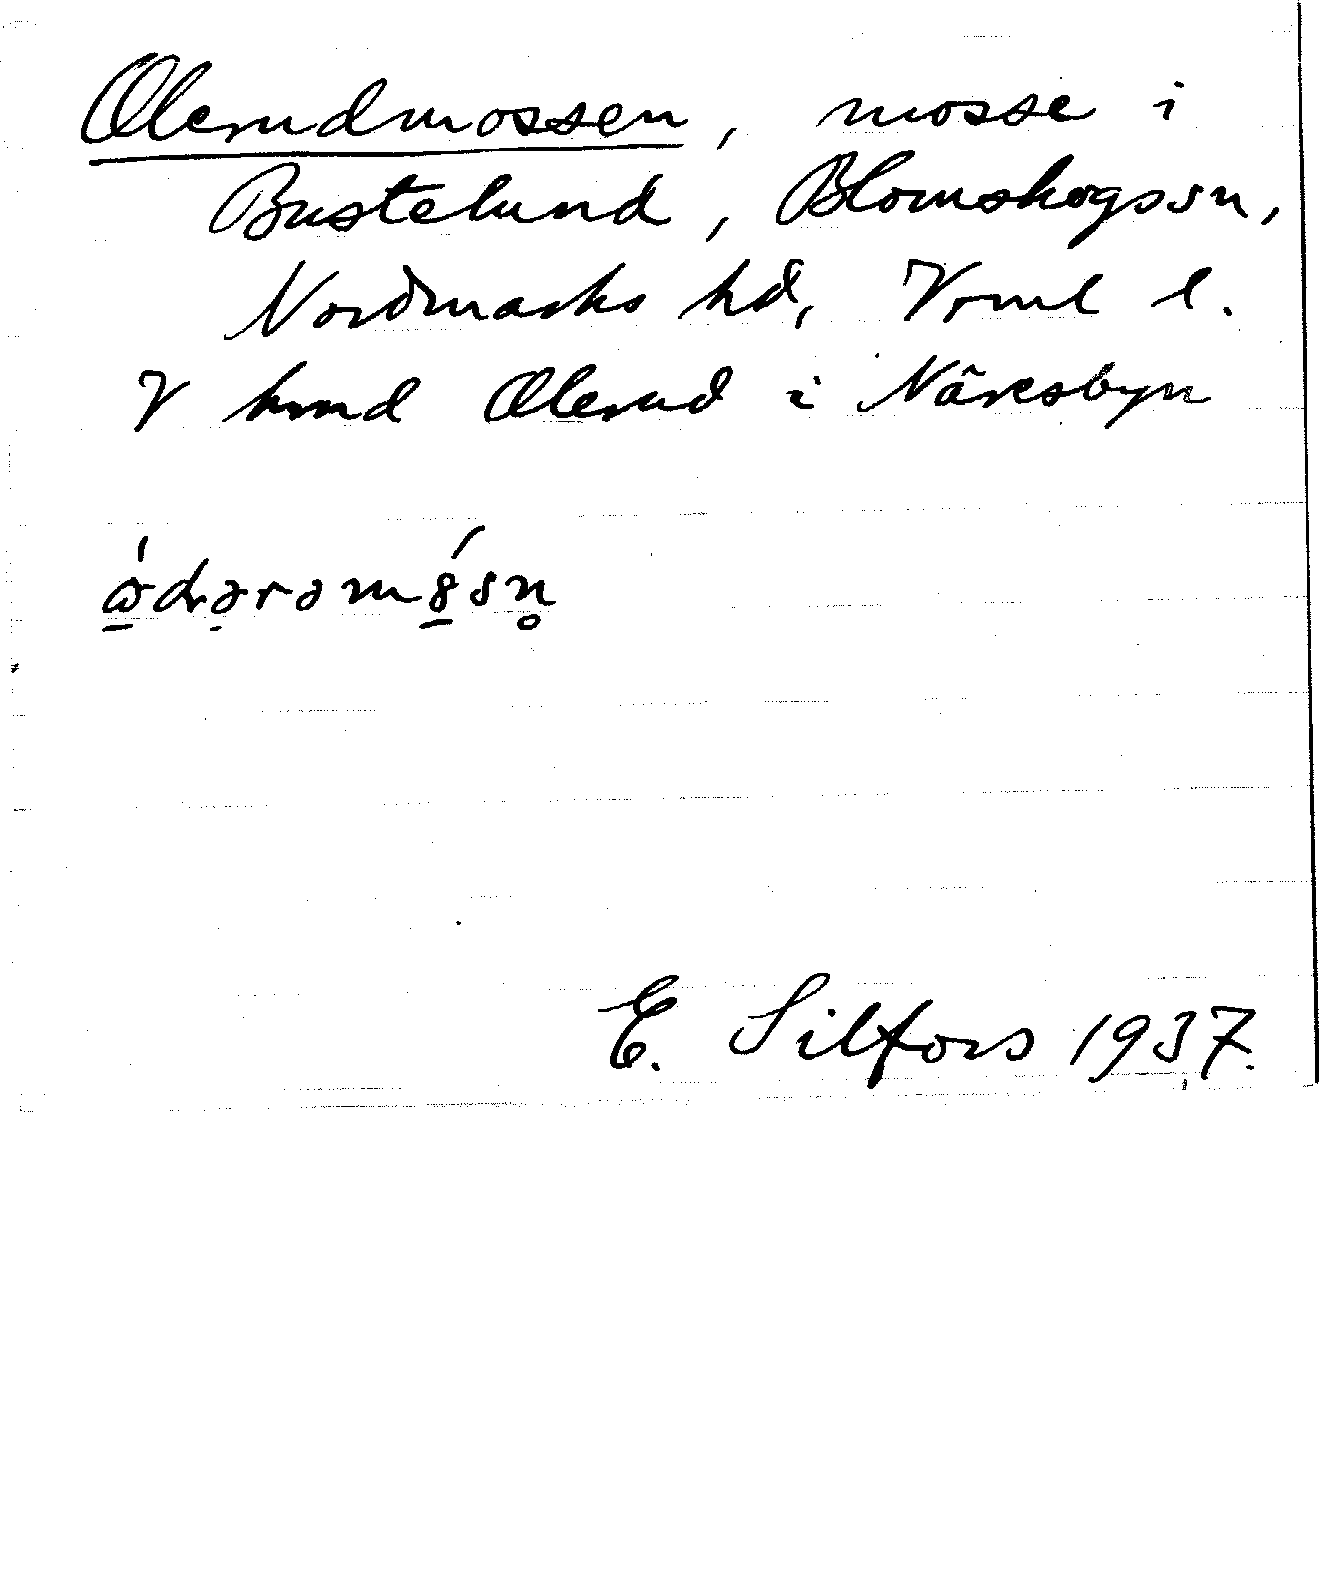 Olerudmossen, mosse i
Bustelund, Blomskogssn,
Nordmarks hd, Vrml l.
V hmd Olerud i Näresbyn
E. Silfors 1937.